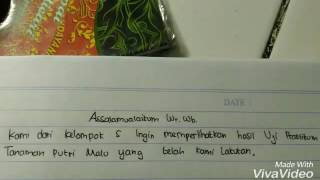 DATE
Assalamualaikum Wr. Wb.
Kami dari kelompok 5 Ingin memperlihatkan hasil Uji Praktikum
Tanaman Putri Malu yang telah kami lakukan.
Made With
VivaVideo